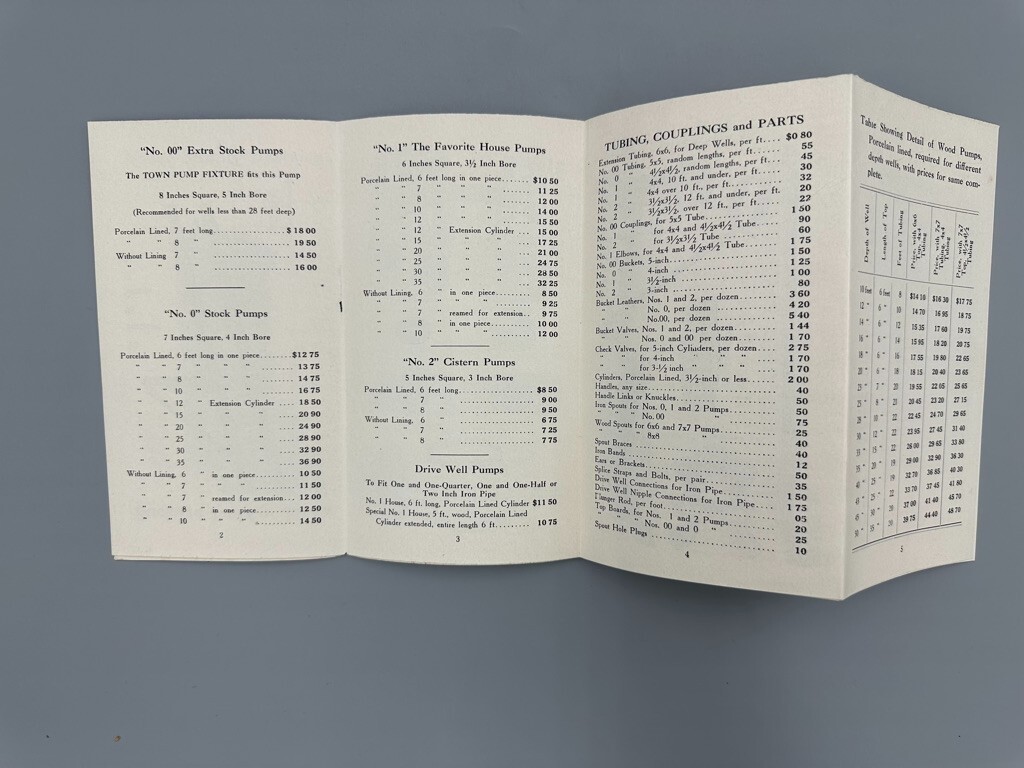 "No. 00" Extra Stock Pumps
The TOWN PUMP FIXTURE fits this Pump
8 Inches Square, 5 Inch Bore
(Recommended for wells less than 28 feet deep)
Porcelain Lined, 7 feet long ........ $18 00
" " 8 " ........ 19 50
Without Lining 7 " ........ 14 50
" " 8 " ........ 16 00
"No. 0" Stock Pumps
7 Inches Square, 4 Inch Bore
Porcelain Lined, 6 feet long in one piece ........ $12 75
" " 7 " " " ........ 13 75
" " 8 " " " ........ 14 75
" " 10 " " " ........ 16 75
" " 12 " Extension Cylinder .... 18 50
" " 15 " " " .... 20 90
" " 20 " " " .... 24 90
" " 25 " " " .... 28 90
" " 30 " " " .... 32 90
" " 35 " " " .... 36 90
Without Lining, 6 " in one piece ........ 10 50
" " 7 " " " ........ 11 50
" " 7 " reamed for extension .. 12 00
" " 8 " in one piece ........ 12 50
" " 10 " " " ........ 14 50
2
"No. 1" The Favorite House Pumps
6 Inches Square, 3½ Inch Bore
Porcelain Lined, 6 feet long in one piece ........ $10 50
" " 7 " " " ........ 11 25
" " 8 " " " ........ 12 00
" " 10 " " " ........ 14 00
" " 12 " " " ........ 15 50
" " 12 " Extension Cylinder .... 15 00
" " 15 " " " .... 17 25
" " 20 " " " .... 21 00
" " 25 " " " .... 24 75
" " 30 " " " .... 28 50
" " 35 " " " .... 32 25
Without Lining, 6 " in one piece ........ 8 50
" " 7 " " " ........ 9 25
" " 7 " reamed for extension .. 9 75
" " 8 " in one piece ........ 10 00
" " 10 " " " ........ 12 00
"No. 2" Cistern Pumps
5 Inches Square, 3 Inch Bore
Porcelain Lined, 6 feet long ........ $8 50
" " 7 " ........ 9 00
" " 8 " ........ 9 50
Without Lining, 6 " ........ 6 75
" " 7 " ........ 7 25
" " 8 " ........ 7 75
Drive Well Pumps
To Fit One and One-Quarter, One and One-Half or
Two Inch Iron Pipe
No. 1 House, 6 ft. long, Porcelain Lined Cylinder $11 50
Special No. 1 House, 5 ft., wood, Porcelain Lined
Cylinder extended, entire length 6 ft. ........ 10 75
3
TUBING, COUPLINGS and PARTS
Extension Tubing, 6x6, for Deep Wells, per ft. .... $0 80
No. 00 Tubing, 5x5, random lengths, per ft. .... 55
No. 0 " 4½x4½, random lengths, per ft. .... 45
No. 1 " 4x4, 10 ft. and under, per ft. .... 30
No. 1 " 4x4 over 10 ft., per ft. .... 32
No. 2 " 3½x3½, 12 ft. and under, per ft. 20
No. 2 " 3½x3½, over 12 ft., per ft. .... 22
No. 00 Couplings, for 5x5 Tube .... 1 50
No. 1 " for 4x4 and 4½x4½ Tube .... 90
No. 2 " for 3½x3½ Tube .... 60
No. 1 Elbows, for 4x4 and 4½x4½ Tube .... 1 75
No. 00 Buckets, 5-inch .... 1 50
No. 0 " 4-inch .... 1 25
No. 1 " 3½-inch .... 1 00
No. 2 " 3-inch .... 80
Bucket Leathers, Nos. 1 and 2, per dozen .... 3 60
" " No. 0, per dozen .... 4 20
" " No.00, per dozen .... 5 40
Bucket Valves, Nos. 1 and 2, per dozen .... 1 44
" " Nos. 0 and 00 per dozen .... 1 70
Check Valves, for 5-inch Cylinders, per dozen .... 2 75
" " for 4-inch " " .... 1 70
" " for 3-½ inch " " .... 1 70
Cylinders, Porcelain Lined, 3½-inch or less .... 2 00
Handles, any size .... 40
Handle Links or Knuckles .... 50
Iron Spouts for Nos. 0, 1 and 2 Pumps .... 50
" " " No. 00 " .... 75
Wood Spouts for 6x6 and 7x7 Pumps .... 25
" " " 8x8 " .... 40
Spout Braces .... 40
Iron Bands .... 40
Ears or Brackets .... 12
Splice Straps and Bolts, per pair .... 50
Drive Well Connections for Iron Pipe .... 35
Drive Well Nipple Connections for Iron Pipe .... 1 50
Plunger Rod, per foot .... 05
Top Boards, for Nos. 1 and 2 Pumps .... 20
" " Nos. 00 and 0 " .... 25
Spout Hole Plugs .... 10
4
Table Showing Detail of Wood Pumps,
Porcelain lined, required for different
depth wells, with prices for same complete.
Depth of Well
Length of Top
Feet of Tubing
Price, with 6x6 Top, 4x4 Tubing
Price, with 7x7 Top, 4x4 Tubing
Price, with 7x7 Top, 4½x4½ Tubing
10 feet 6 feet 8 $14 10 $16 30 $17 75
12 " 6 " 10 14 70 16 95 18 75
14 " 6 " 12 15 35 17 60 19 75
16 " 6 " 14 15 95 18 20 20 75
18 " 6 " 16 17 55 19 80 22 65
20 " 6 " 18 18 15 20 40 23 65
23 " 7 " 20 19 55 22 05 25 65
25 " 8 " 20 45 23 20 27 15
22 45 24 70 29 65
23 95 27 45 31 40
26 00 29 65 33 80
29 00 32 90 36 30
32 70 36 85 40 30
33 70 37 45 41 80
37 00 41 40 45 70
39 75 44 40 48 70
5